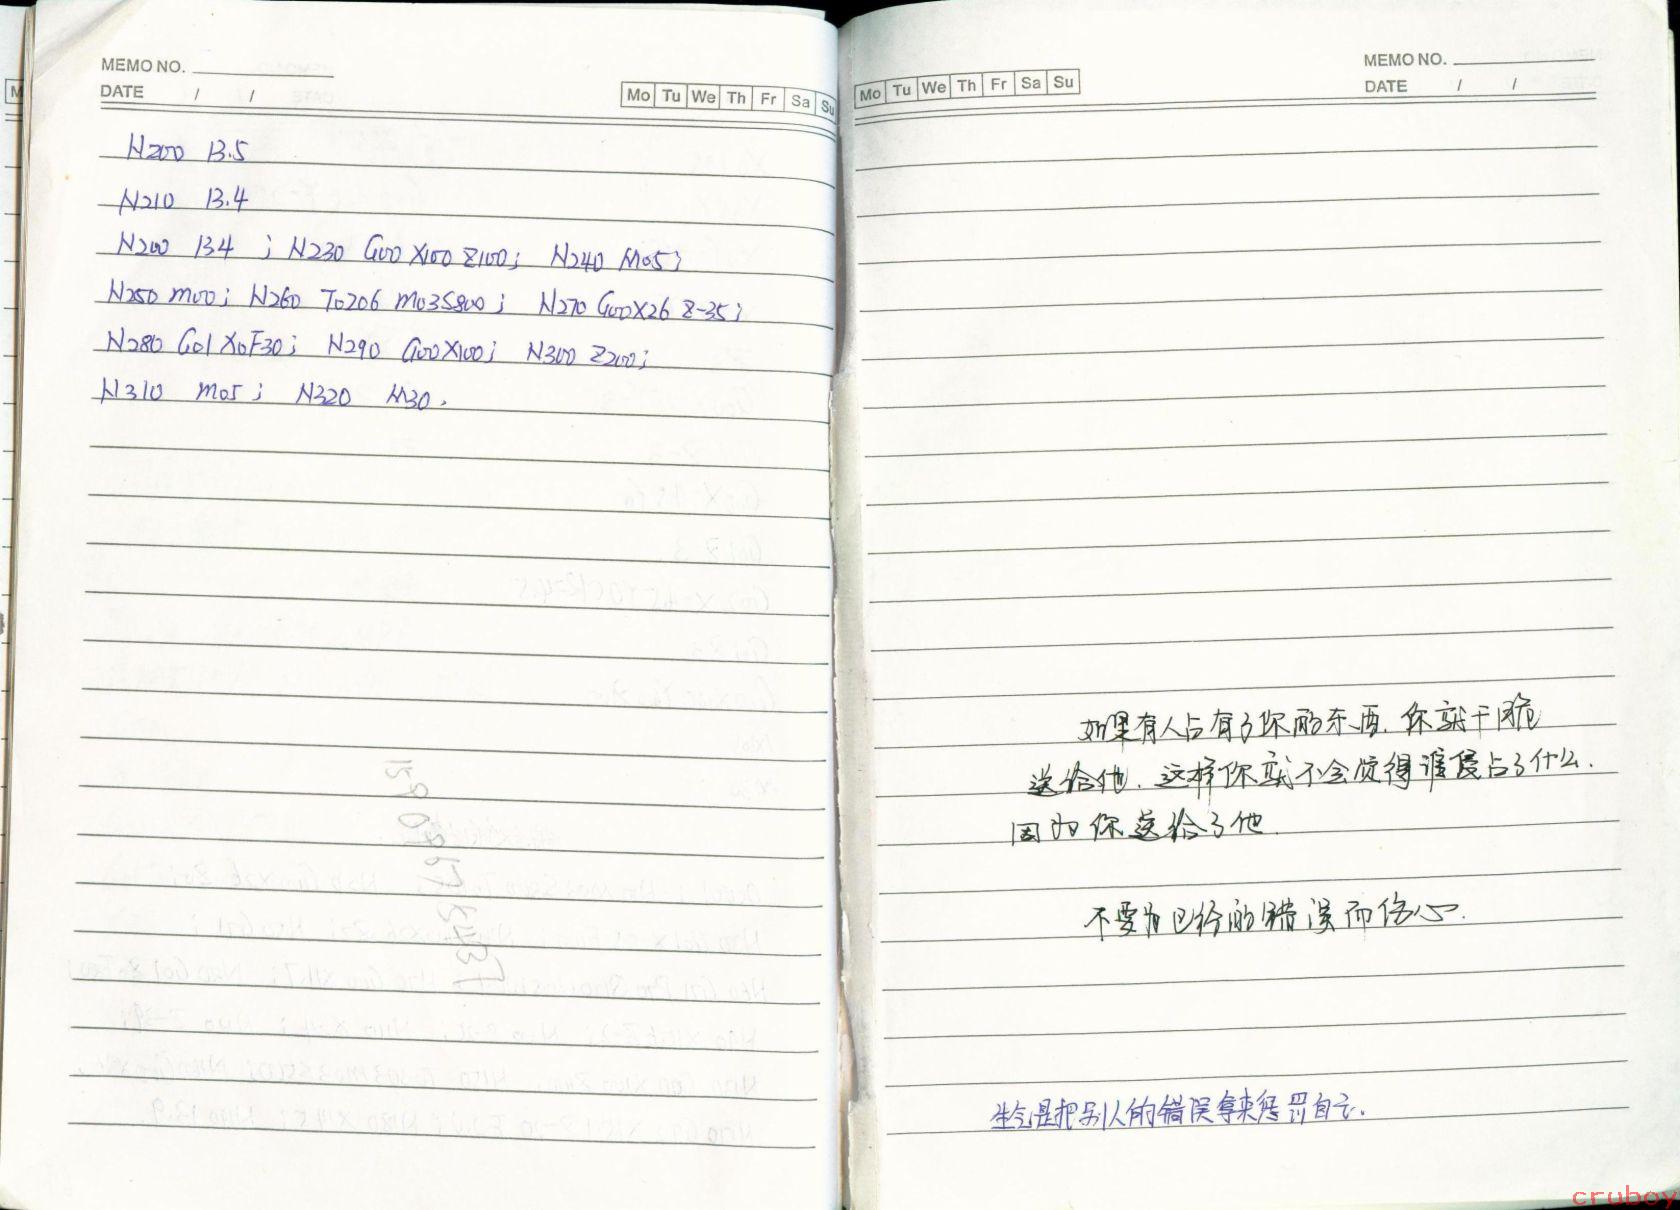 MEMO NO.
DATE / /
Mo Tu We Th Fr Sa Su
N200 13.5
N210 13.4
N200 13.4 ; N230 G00 X100 Z100; N240 M05;
N250 M00; N260 T0206 M03S800; N270 G00X26 Z-35;
N280 G01 X0F30; N290 G00X100; N300 Z200;
N310 M05; N320 M30.
MEMO NO.
Mo Tu We Th Fr Sa Su
DATE / /
如果有人占有了你的东西.你就干脆
送给他.这样你就不会觉得谁侵占了什么.
因为你送给了他.
不要为已经的错误而伤心.
生气是把别人的错误拿来惩罚自己.
cruboy